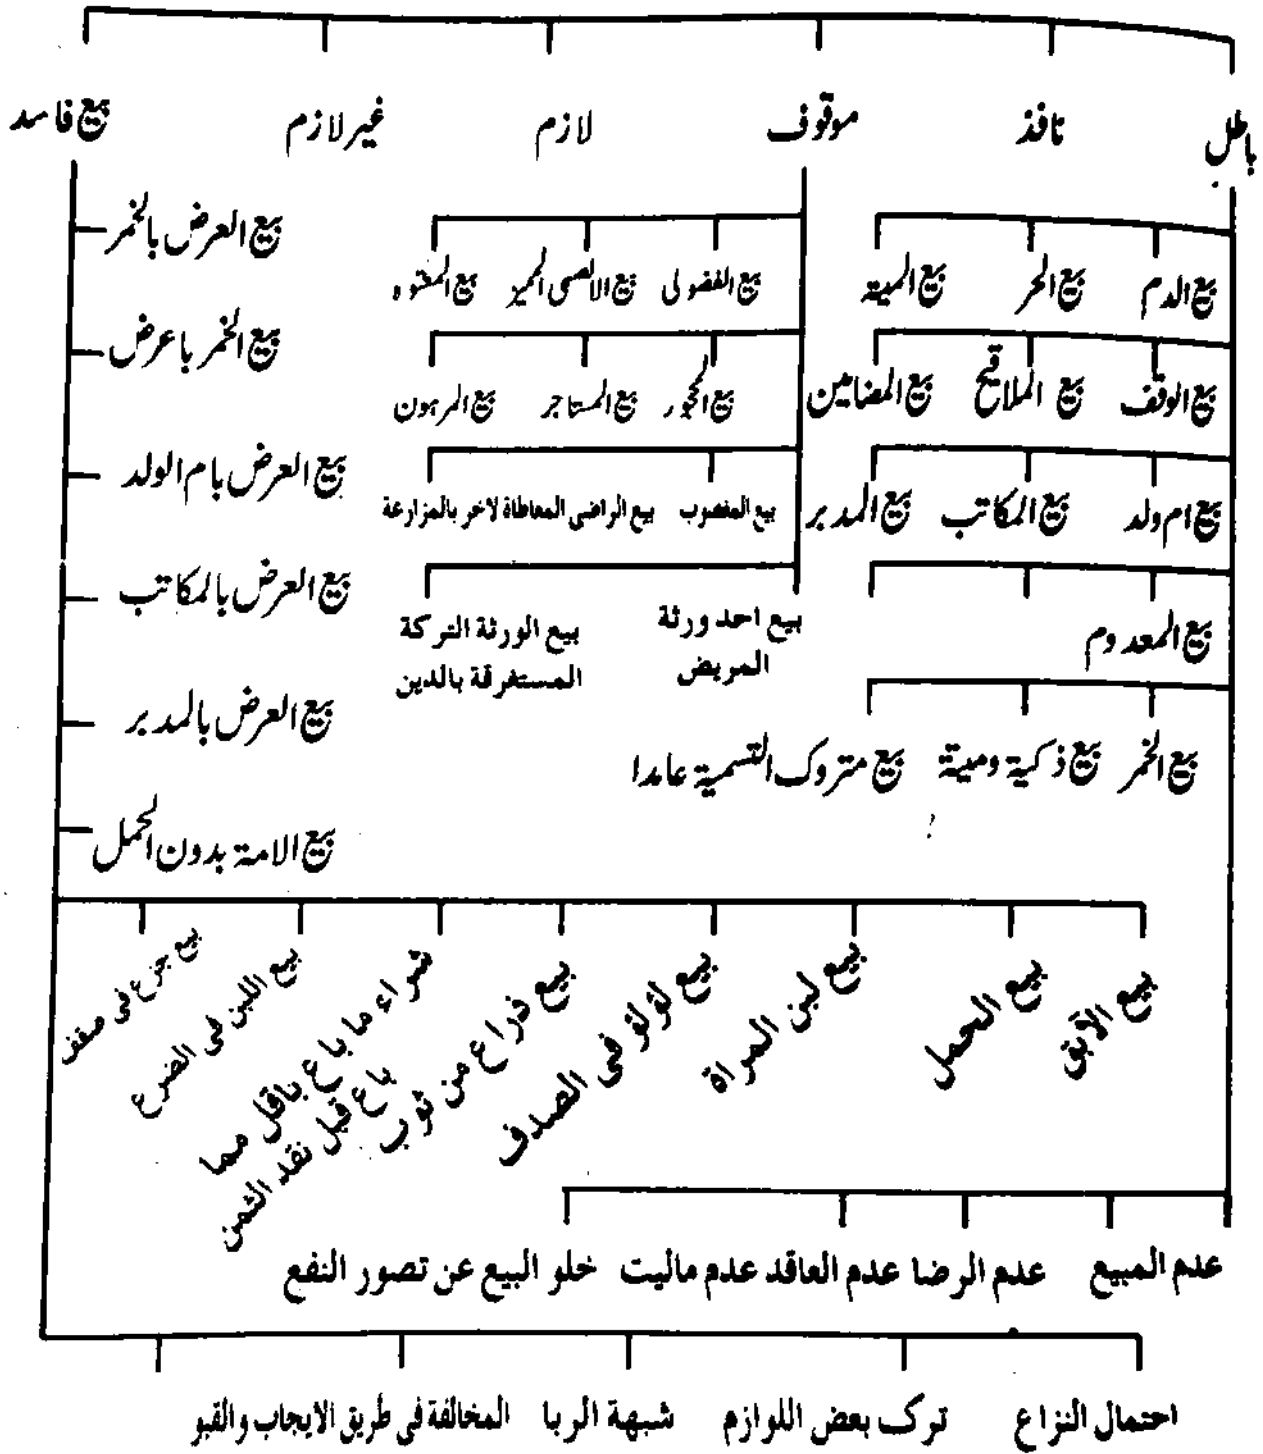 باطل نافذ موقوف لازم غیر لازم بیع فاسد
بیع الدم بیع الحر بیع المیتہ
بیع الوقف بیع الملاقیح بیع المضامین
بیع ام ولد بیع المکاتب بیع المدبر
بیع المعدوم
بیع الخمر بیع ذکیة ومیتة بیع متروک التسمیة عامدا
بیع الفضولی بیع الالصبی الممیز بیع المعتوہ
بیع المحجور بیع المستاجر بیع المرہون
بیع المغصوب بیع الراضی المعاطاة لاخر بالمزارعة
بیع احد ورثة
المریض
بیع الورثة الترکة
المستغرقة بالدین
بیع العرض بالخمر
بیع الخمر باعرض
بیع العرض بام الولد
بیع العرض بالمکاتب
بیع العرض بالمدبر
بیع الامة بدون الحمل
بیع الآبق
بیع الحمل
بیع لبن المراة
بیع لؤلؤ فی الصدف
بیع ذراع من ثوب
شراء ما باع باقل مما
باع قبل نقد الثمن
بیع اللبن فی الضرع
بیع جزع فی سقف
عدم المبیع عدم الرضا عدم العاقد عدم مالیت خلو البیع عن تصور النفع
احتمال النزاع ترک بعض اللوازم شبهة الربا المخالفة فی طریق الایجاب والقبو